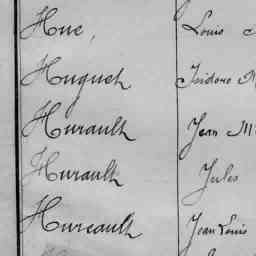 Hue, Louis
Huguet Isidore M
Hurault Jean M
Hurault Jules
Hureault Jean Louis